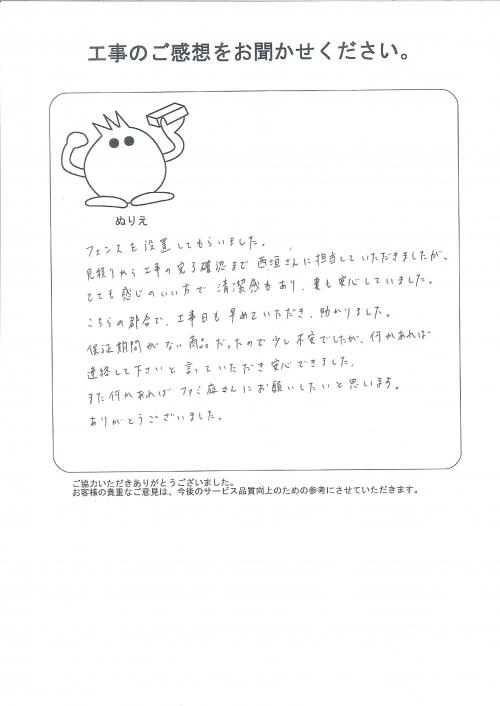 工事のご感想をお聞かせください。
ぬりえ
フェンスを設置してもらいました。
見積りから工事の完了確認まで西垣さんに担当していただきましたが、
とても感じのいい方で清潔感もあり、妻も安心していました。
こちらの都合で、工事日も早めていただき、助かりました。
保証期間がない商品だったので少し不安でしたが、何かあれば
連絡して下さいと言っていただき安心できました。
また何かあればファミ庭さんにお願いしたいと思います。
ありがとうございました。
ご協力いただきありがとうございました。
お客様の貴重なご意見は、今後のサービス品質向上のための参考にさせていただきます。